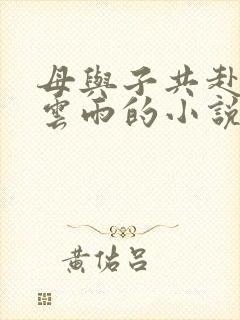 母與子共赴
雲雨的小說
黃佑呂